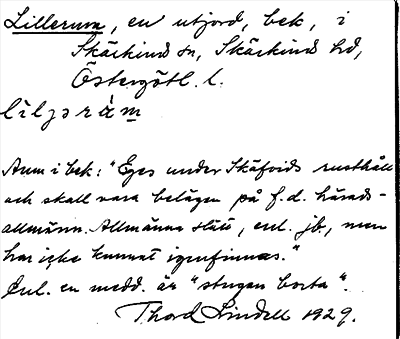 Lillerum, en utjord, bek, i
Skärkind sn, Skärkind hd,
Östergötl. l.
Anm i bek: "Eges under Skäfvids rusthåll
och skall vara belägen på f.d. härads-
allmänn. Allmänna slätt, enl. jb., men
har icke kunnat igenfinnas."
Enl. en medd. är "stugan borta".
Thord Lindell 1929.